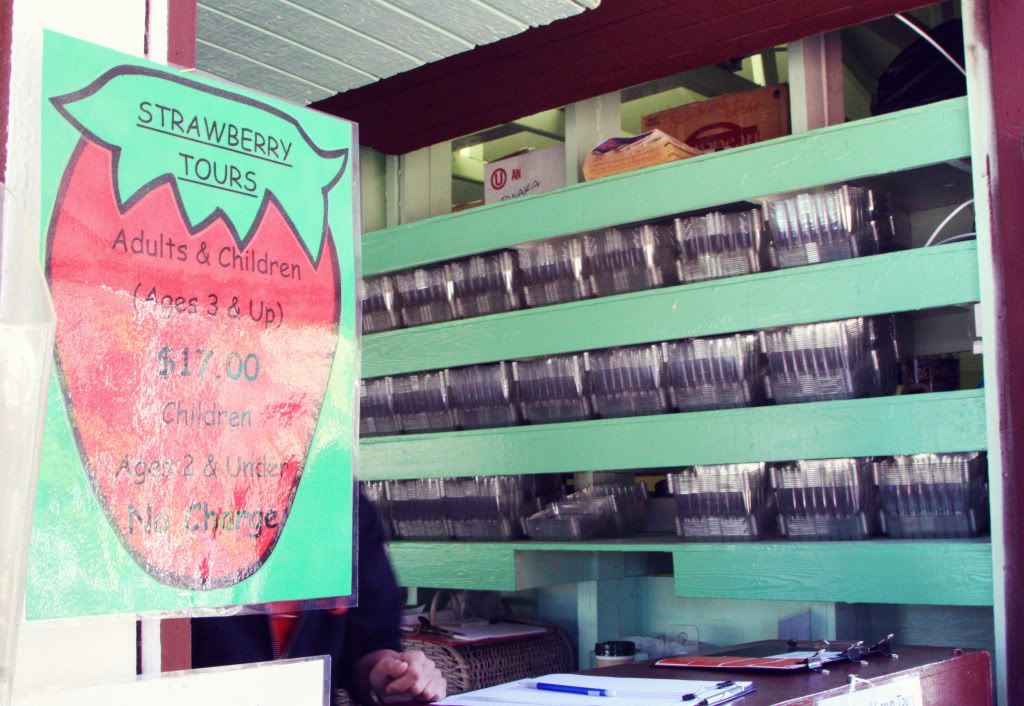 STRAWBERRY
TOURS
Adults & Children
(Ages 3 & Up)
$17.00
Children
Ages 2 & Under
No Charge!
U AN